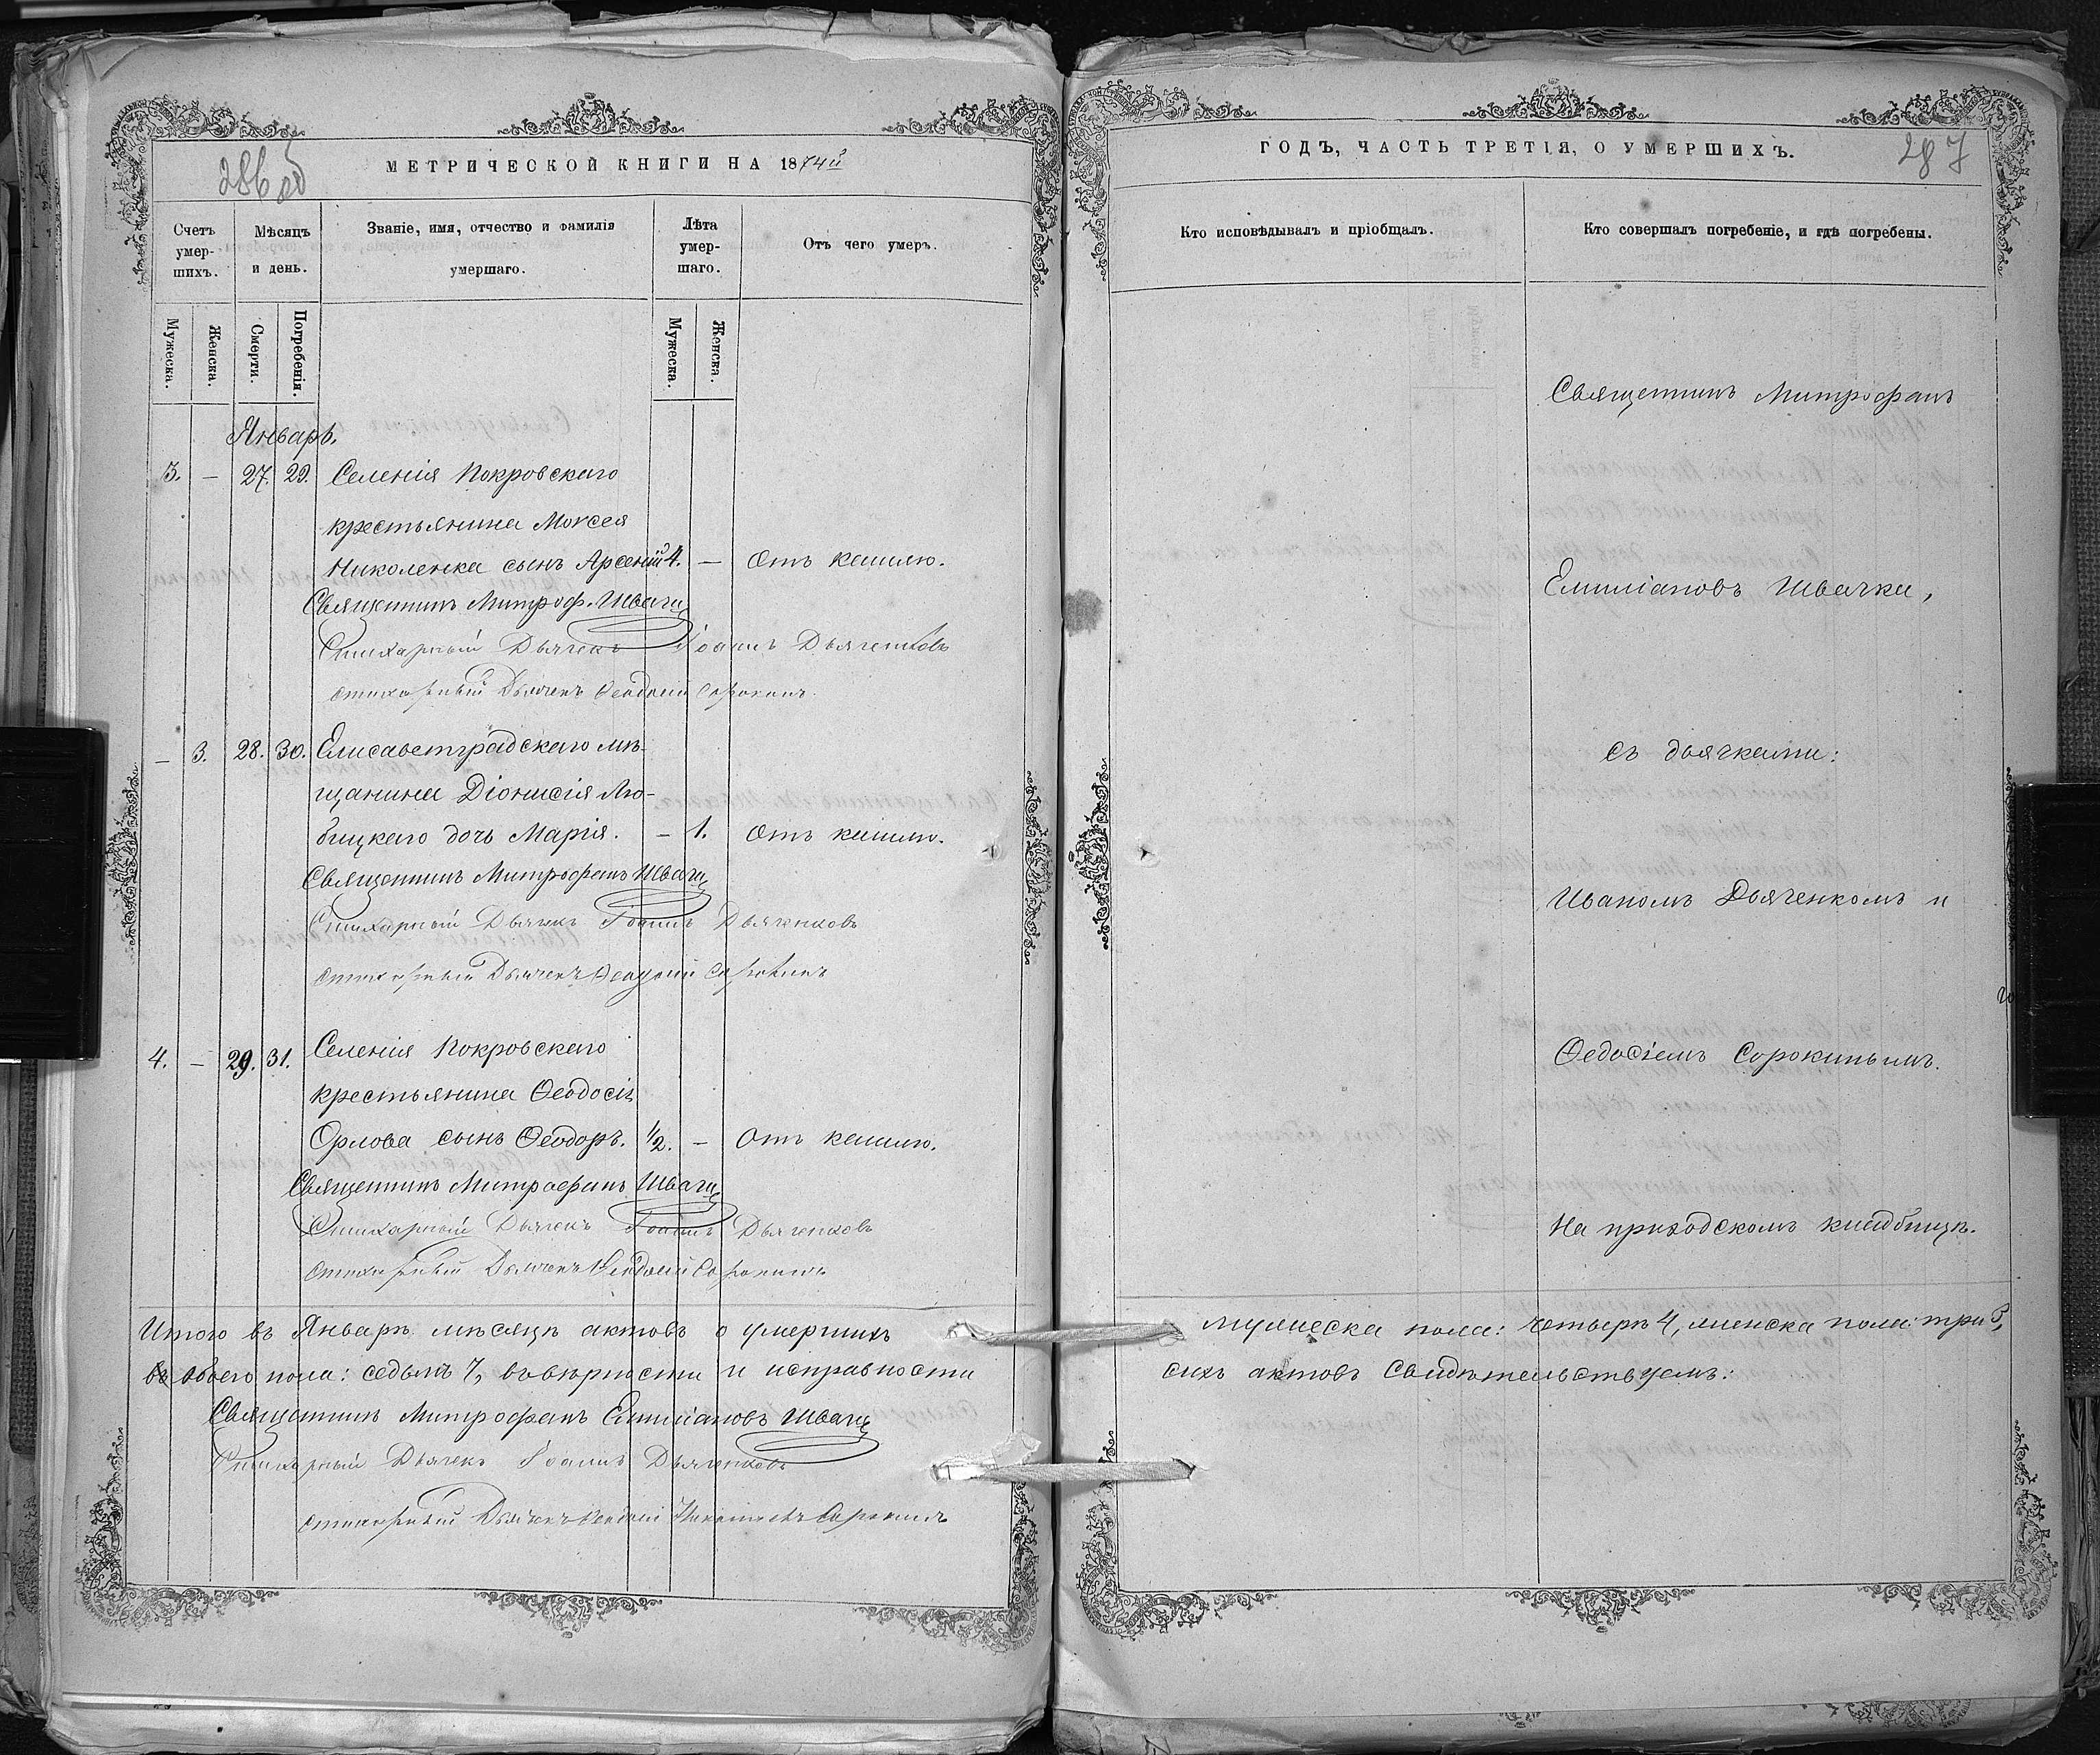 286 об
МЕТРИЧЕСКОЙ КНИГИ НА 1874й
Счетъ умер-шихъ.
Мѣсяцъ и день.
Званіе, имя, отчество и фамилія умершаго.
Лѣта умер-шаго.
Отъ чего умеръ.
Мужеска.
Женска.
Смерти.
Погребенія.
Мужеска.
Женска.
Январь.
3. — 27. 29. Селенія Покровскаго
крестьянина Моисея
Николенка сынъ Арсеній 4. — Отъ кашлю.
Священникъ Митроф. Швачка
Стихарный Дьячекъ Іоаннъ Дьяченковъ
Стихарный Дьячекъ Ѳеодосій Сорокинъ
— 3. 28. 30. Елисаветградскаго мѣ-
щанина Діонисія Лю-
бицкаго дочь Марія. — 1. Отъ кашлю.
Священникъ Митрофанъ Швачка
Стихарный Дьячекъ Іоаннъ Дьяченковъ
Стихарный Дьячекъ Ѳеодосій Сорокинъ
4. — 29. 31. Селенія Покровскаго
крестьянина Ѳеодосія
Орлова сынъ Ѳеодоръ. 1/2. — Отъ кашлю.
Священникъ Митрофанъ Швачка
Стихарный Дьячекъ Іоаннъ Дьяченковъ
Стихарный Дьячекъ Ѳеодосій Сорокинъ
Итого въ Январѣ мѣсяцѣ актовъ о умершихъ
обоего пола: седьмъ 7, въ вѣрности и исправности
Священникъ Митрофанъ Емиліановъ Швачка
Стихарный Дьячекъ Іоаннъ Дьяченковъ
Стихарный Дьячекъ Ѳеодосій Сорокинъ
287
ГОДЪ, ЧАСТЬ ТРЕТІЯ, О УМЕРШИХЪ.
Кто исповѣдывалъ и пріобщалъ.
Кто совершалъ погребеніе, и гдѣ погребены.
Священникъ Митрофанъ
Емиліановъ Швачка,
съ дьячками:
Иваномъ Дьяченкомъ и
Ѳедосіемъ Сорокинымъ.
На приходскомъ кладбищѣ.
мужеска пола: четыръ 4, женска пола: три 3,
сихъ актовъ свидѣтельствуемъ: